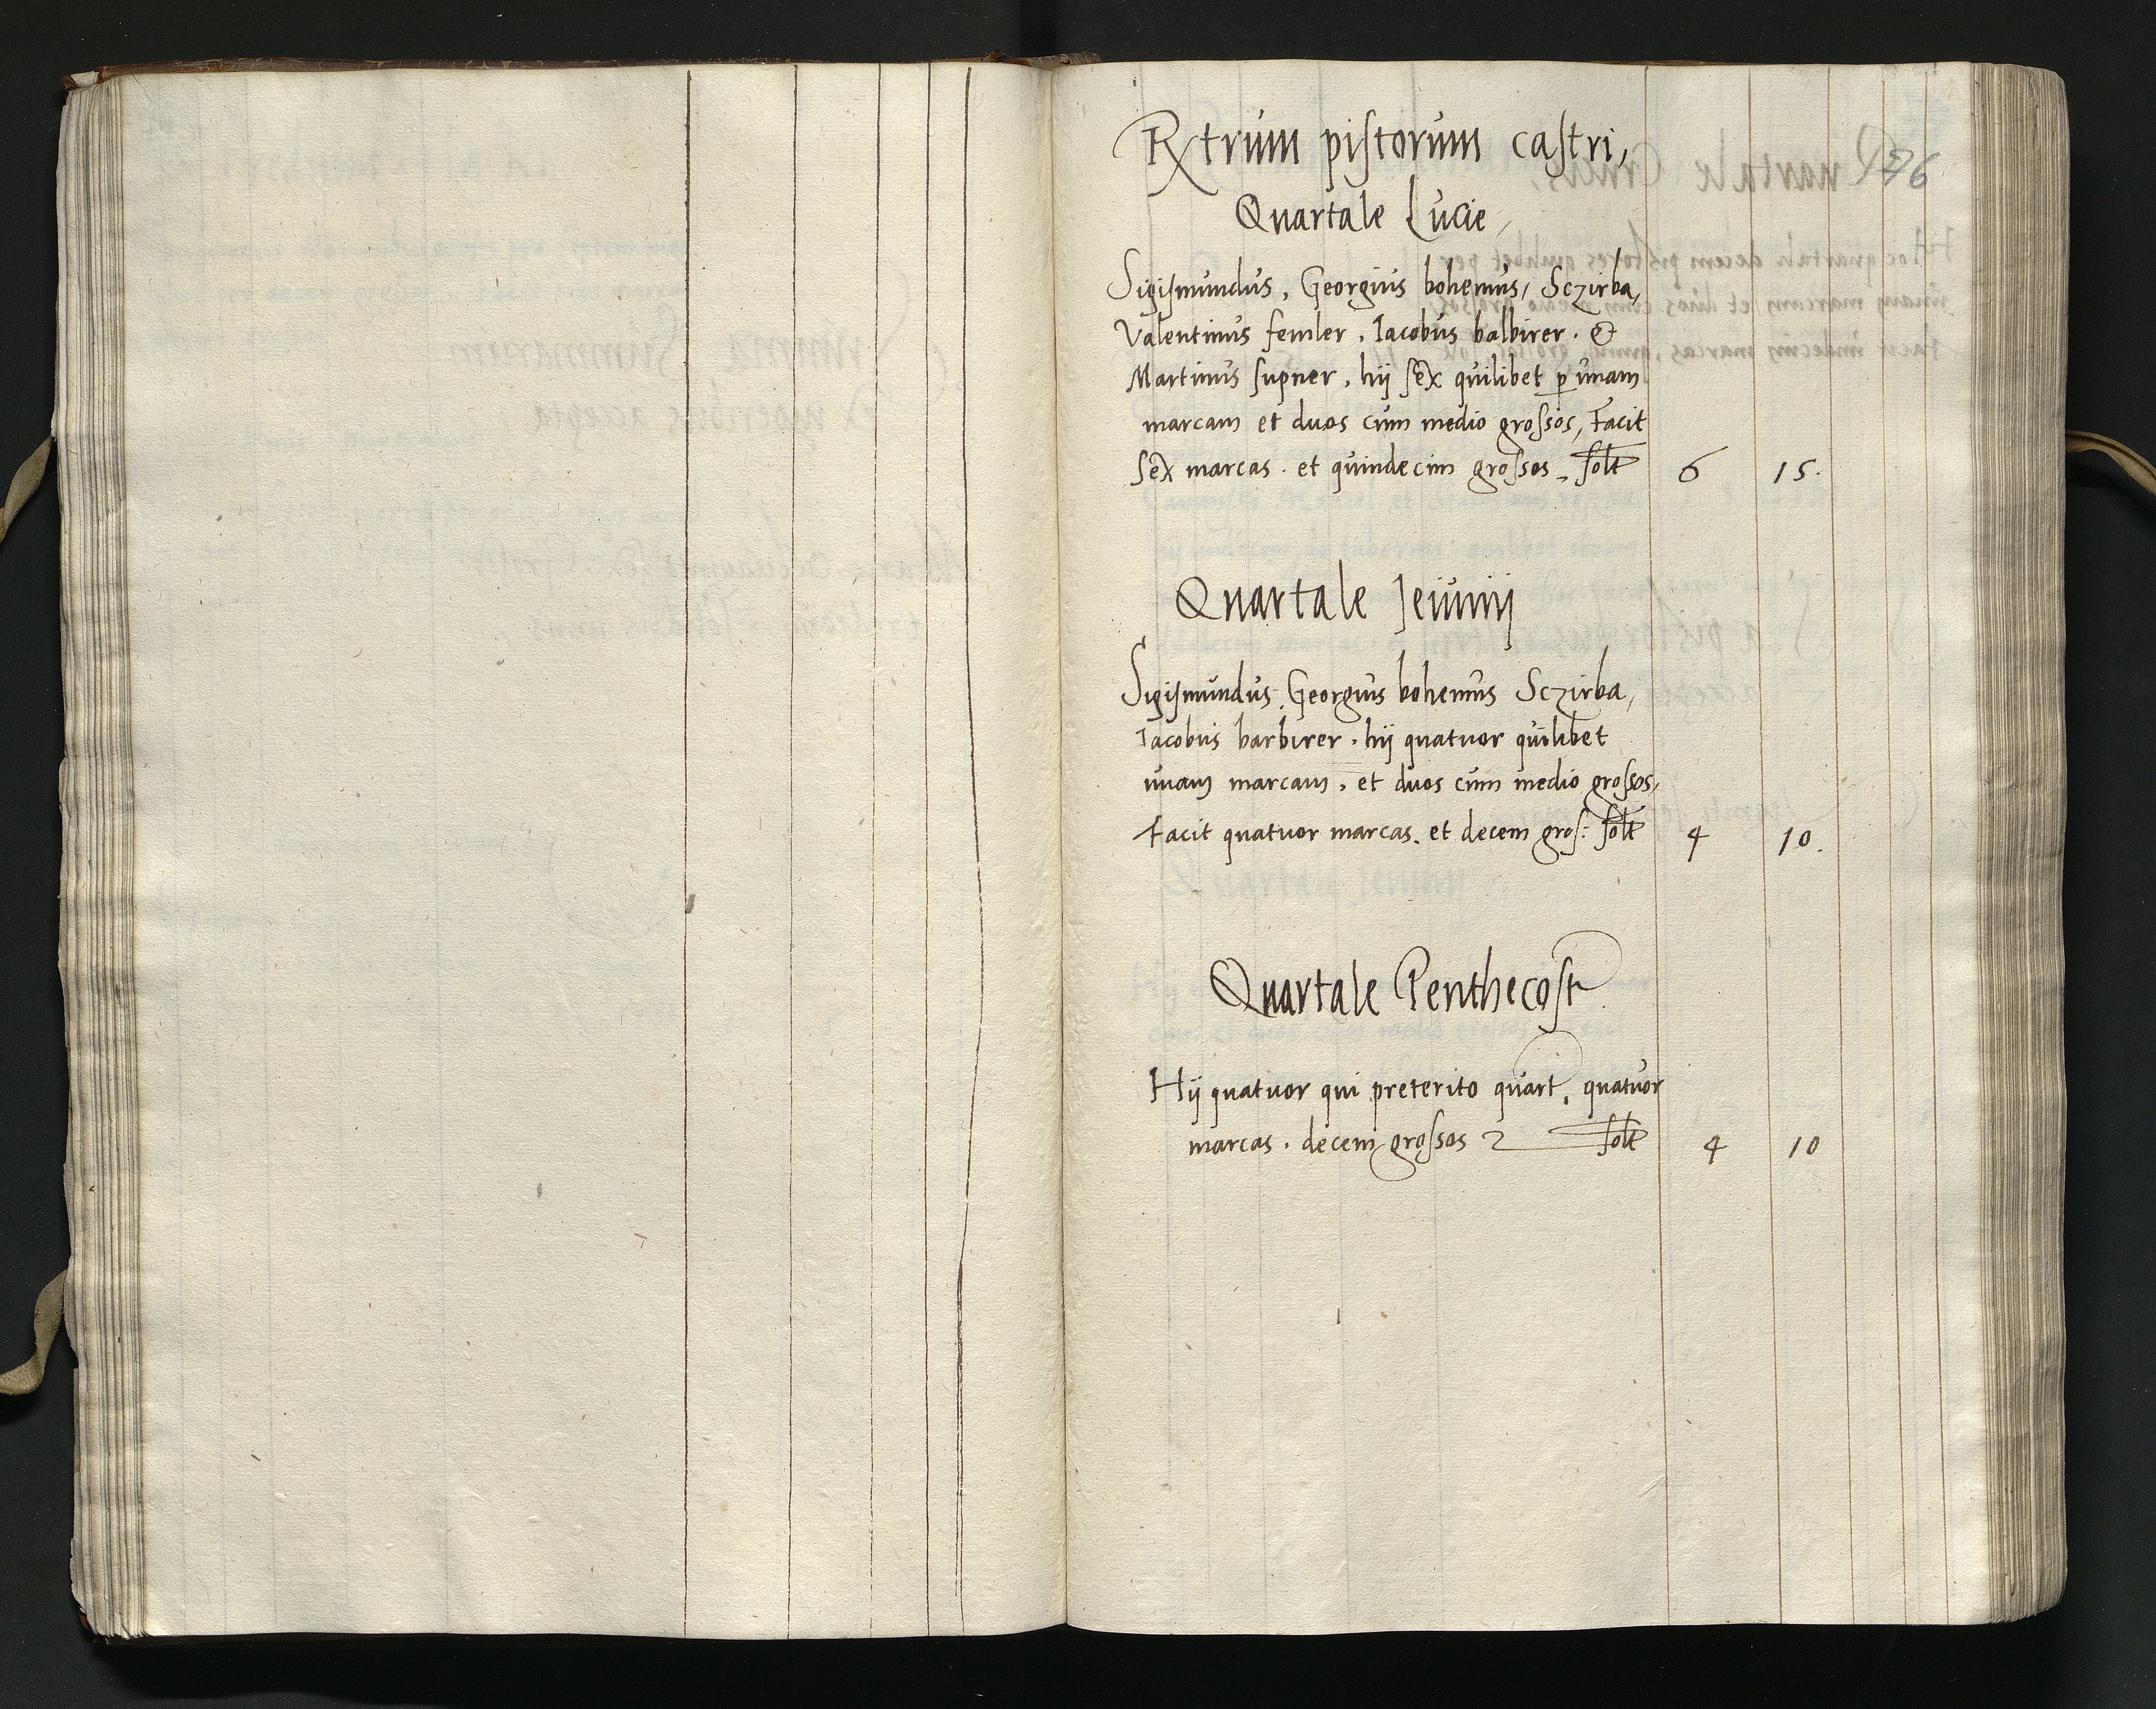 76
Rxtrum pistorum castri,
Quartale Lucie,
Sigismundus, Georgius bohemus, Sczirba,
Valentinus femler, Iacobus balbirer. &
Martinus supner, hij sex quilibet p unam
marcam et duos cum medio grossos, Facit
Sex marcas. et quindecim grossos solt 6 15.
Quartale Jeiunij
Sigismundus, Georgius bohemus Sczirba,
Iacobus barbirer, hij quatuor quilibet
unam marcam, et duos cum medio grossos,
Facit quatuor marcas, et decem gros: solt 4 10.
Quartale Penthecost
Hij quatuor qui preterito quart, quatuor
marcas. decem grossos solt 4 10